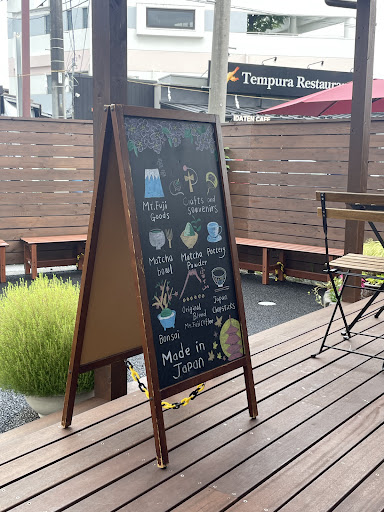 Tempura Restaurant
IDATEN CAFE
Mt.Fuji
Goods
Crafts and
souvenirs
Matcha
bowl
Matcha
Powder
Pottery
Bonsai
Original Blend
Mt.Fuji Coffee
Japan
Chopsticks
Made in
Japan